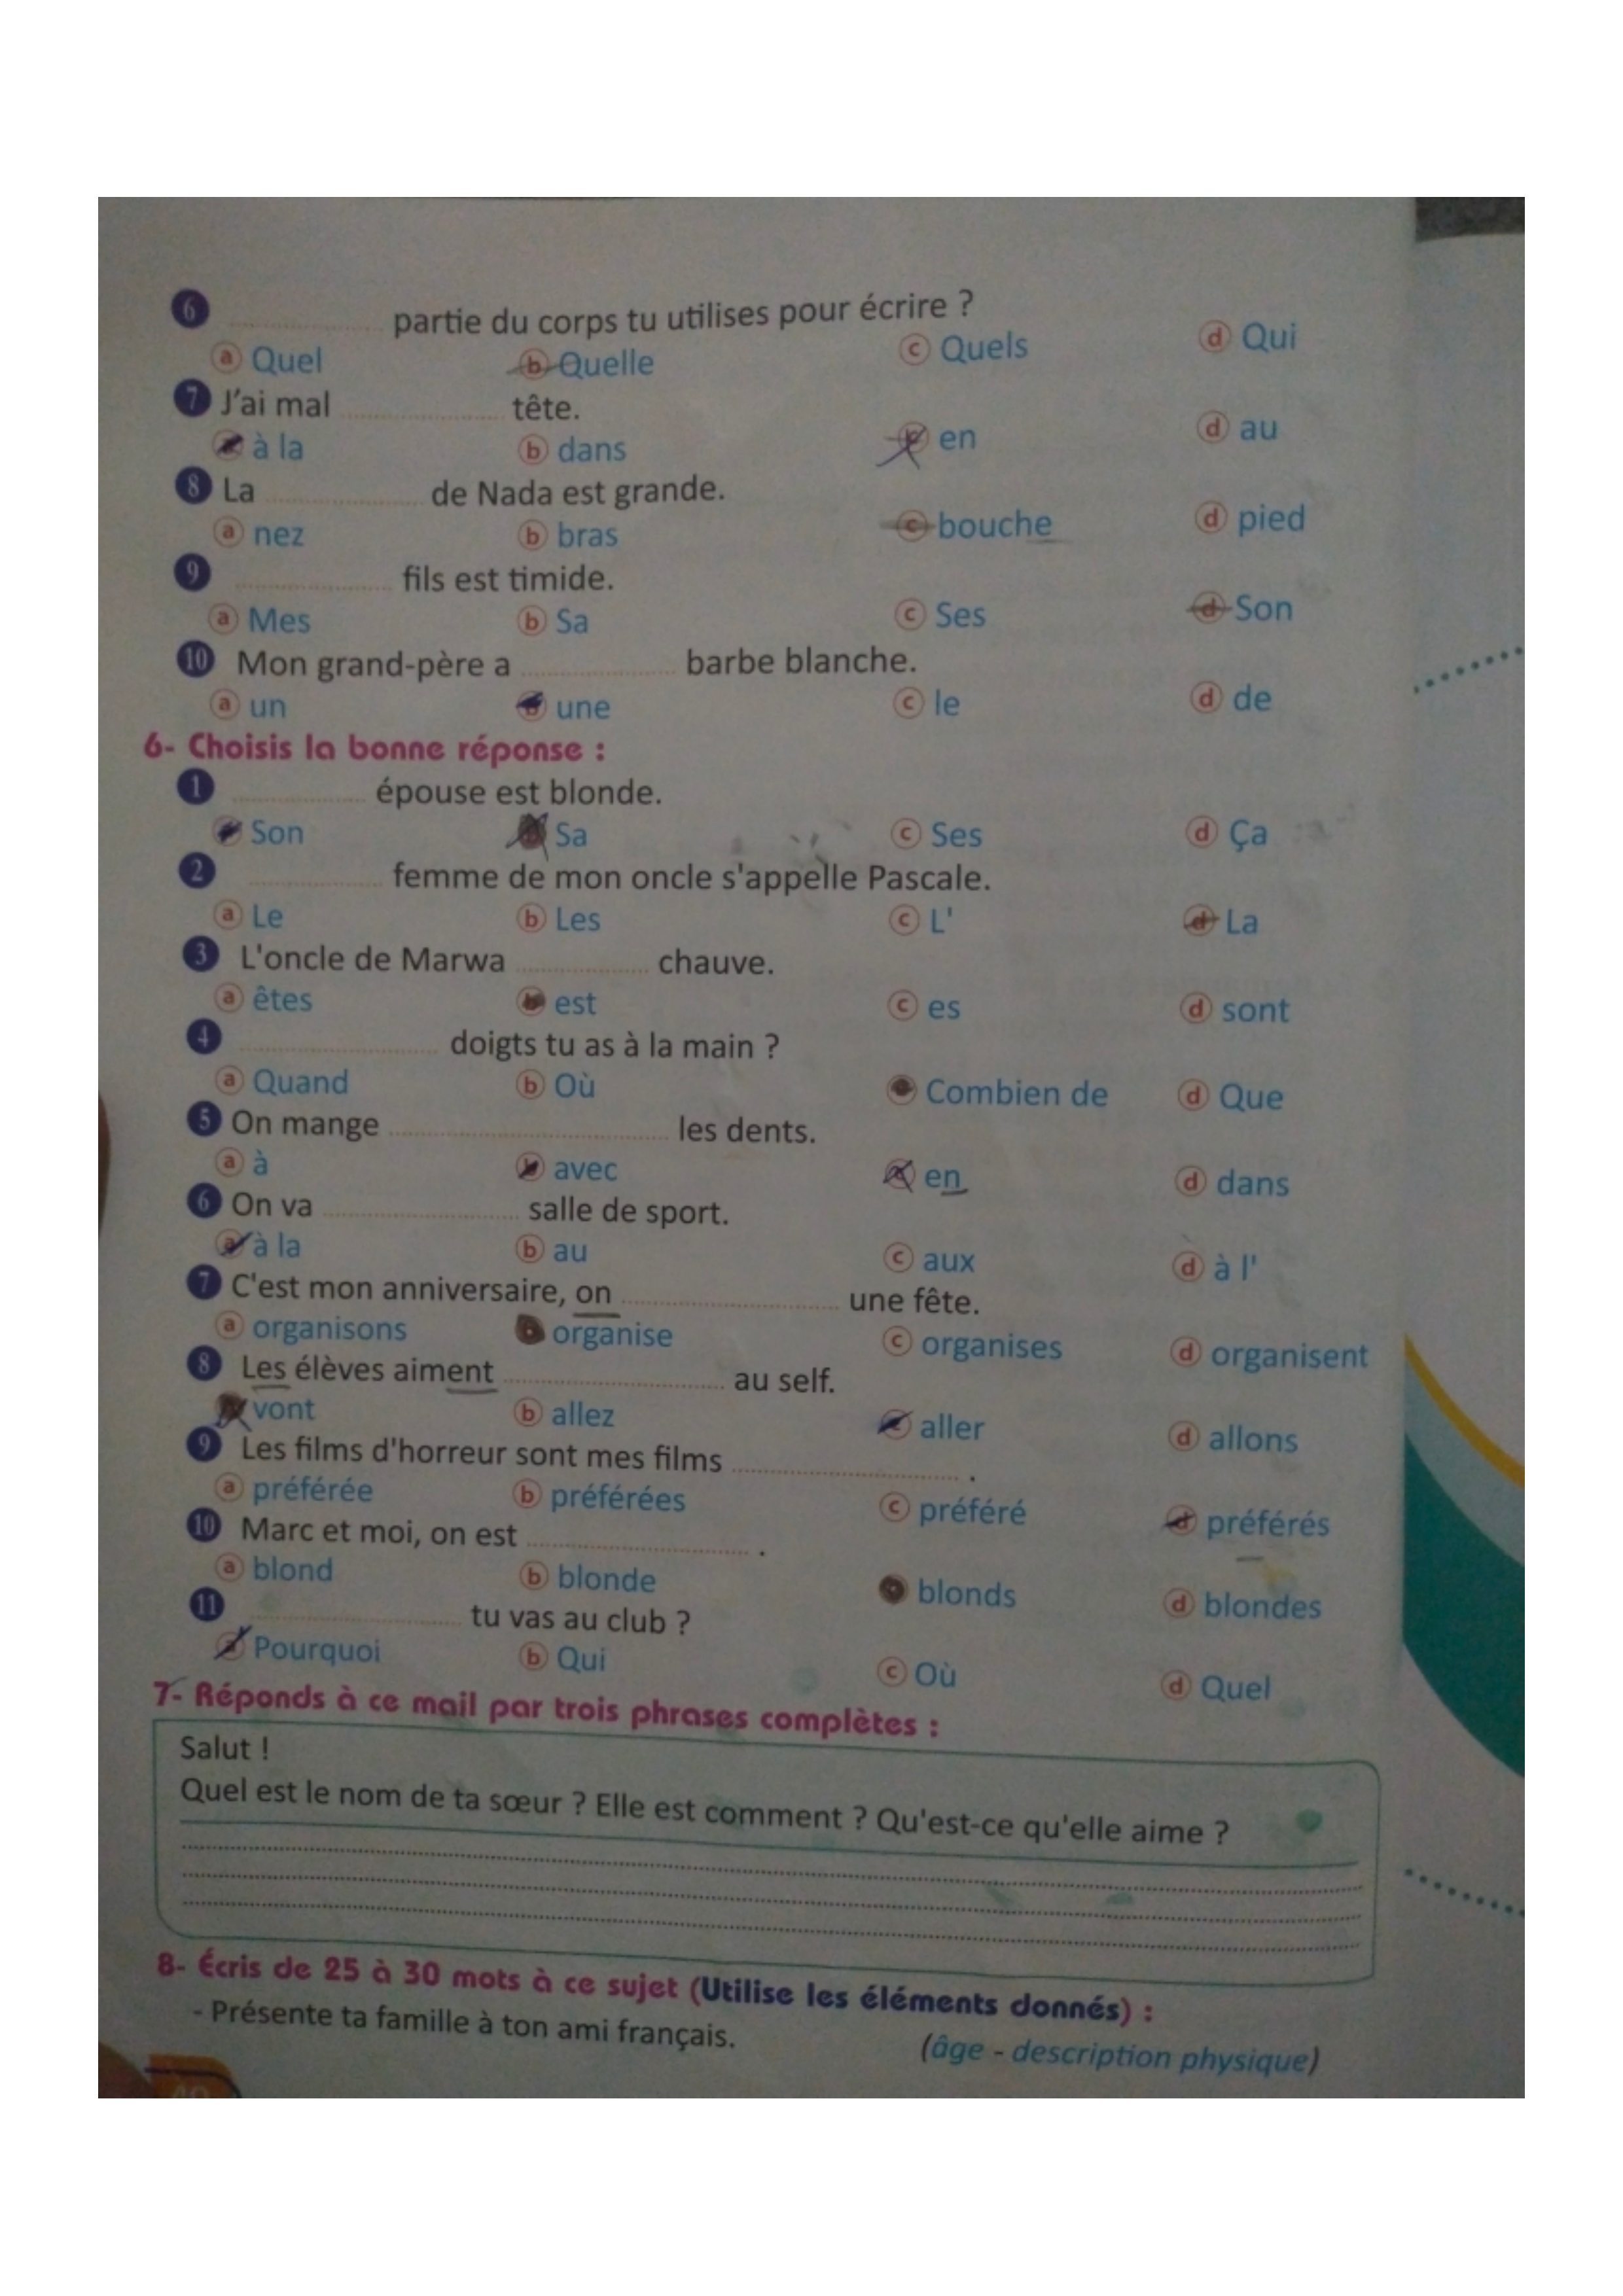 6 ............ partie du corps tu utilises pour écrire ?
a Quel b Quelle c Quels d Qui
7 J'ai mal ............ tête.
a à la b dans c en d au
8 La ............ de Nada est grande.
a nez b bras c bouche d pied
9 ............ fils est timide.
a Mes b Sa c Ses d Son
10 Mon grand-père a ............ barbe blanche.
a un b une c le d de
6- Choisis la bonne réponse :
1 ............ épouse est blonde.
a Son b Sa c Ses d Ça
2 ............ femme de mon oncle s'appelle Pascale.
a Le b Les c L' d La
3 L'oncle de Marwa ............ chauve.
a êtes b est c es d sont
4 ............ doigts tu as à la main ?
a Quand b Où c Combien de d Que
5 On mange ............ les dents.
a à b avec c en d dans
6 On va ............ salle de sport.
a à la b au c aux d à l'
7 C'est mon anniversaire, on ............ une fête.
a organisons b organise c organises d organisent
8 Les élèves aiment ............ au self.
a vont b allez c aller d allons
9 Les films d'horreur sont mes films ............ .
a préférée b préférées c préféré d préférés
10 Marc et moi, on est ............ .
a blond b blonde c blonds d blondes
11 ............ tu vas au club ?
a Pourquoi b Qui c Où d Quel
7- Réponds à ce mail par trois phrases complètes :
Salut !
Quel est le nom de ta sœur ? Elle est comment ? Qu'est-ce qu'elle aime ?
8- Écris de 25 à 30 mots à ce sujet (Utilise les éléments donnés) :
- Présente ta famille à ton ami français. (âge - description physique)